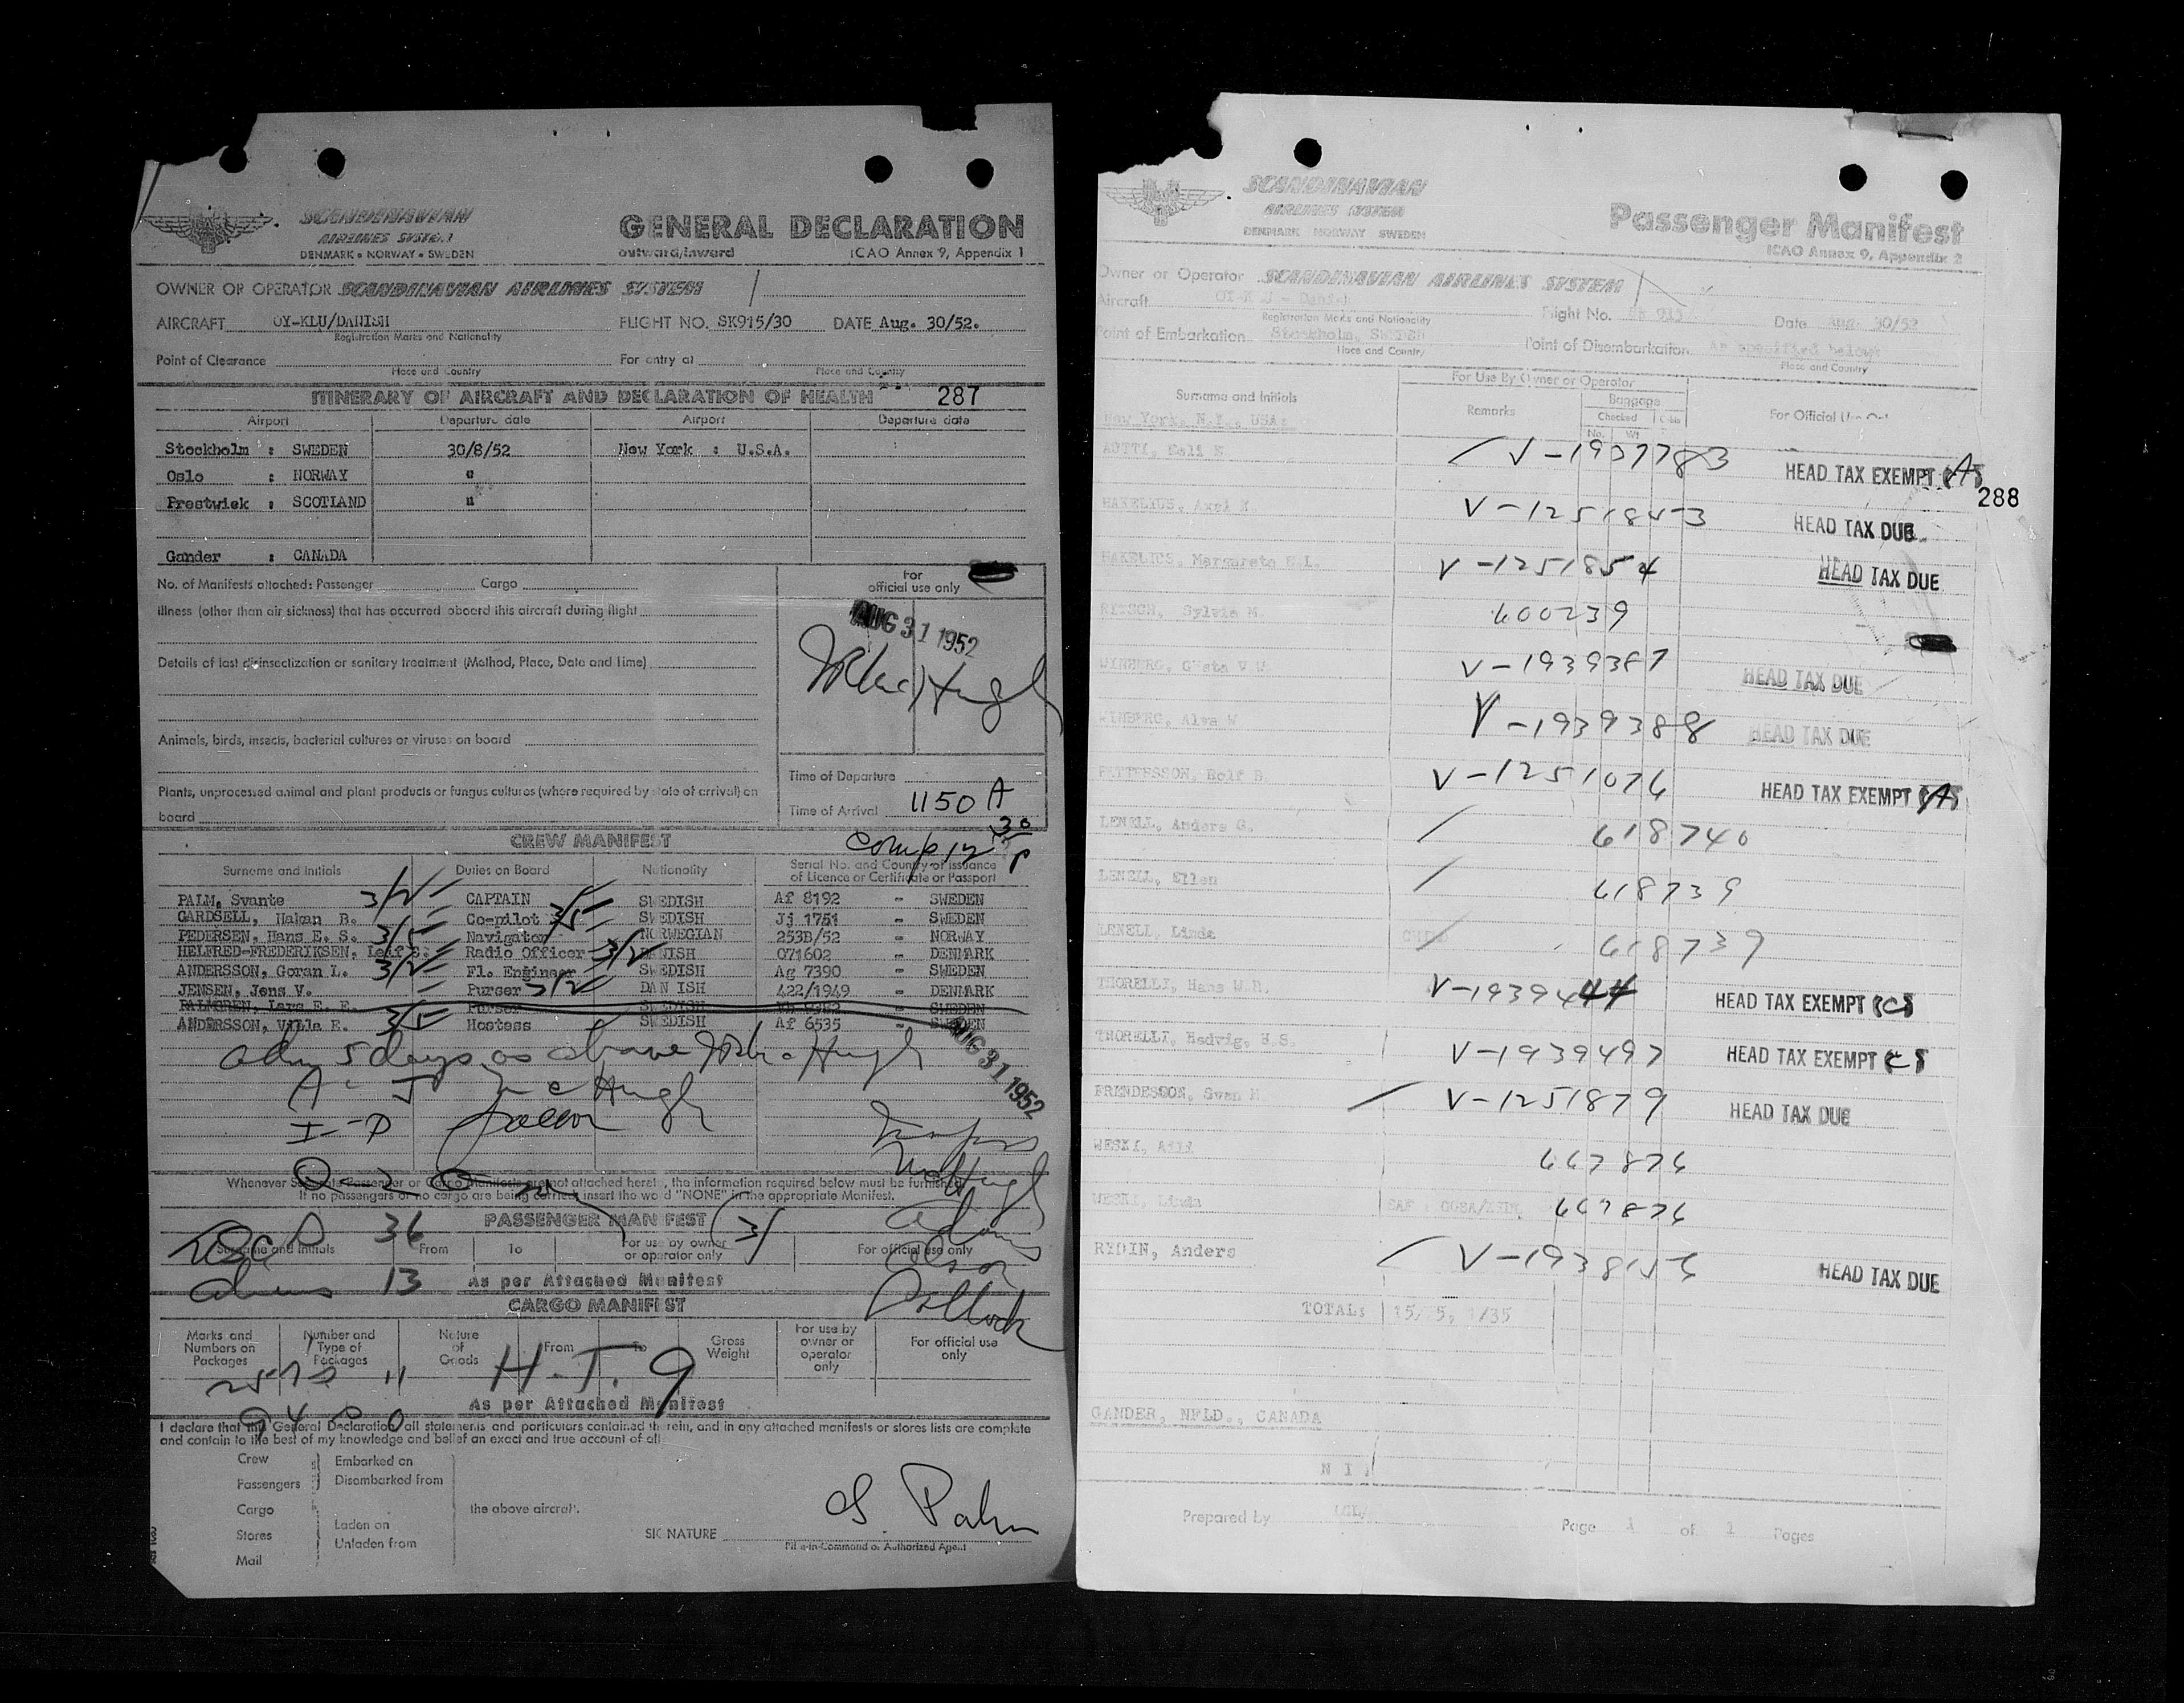 SCANDINAVIAN
AIRLINES SYSTEM
DENMARK • NORWAY • SWEDEN
GENERAL DECLARATION
outward/inward
ICAO Annex 9, Appendix 1
OWNER OR OPERATOR SCANDINAVIAN AIRLINES SYSTEM
AIRCRAFT OY-KLU/DANISH FLIGHT NO. SK915/30 DATE Aug. 30/52.
Registration Marks and Nationality
Point of Clearance For entry at
Place and Country Place and Country
ITINERARY OF AIRCRAFT AND DECLARATION OF HEALTH 287
Airport Departure date Airport Departure date
Stockholm : SWEDEN 30/8/52 New York : U.S.A.
Oslo : NORWAY "
Prestwick : SCOTLAND "
Gander : CANADA
No. of Manifests attached: Passenger Cargo
For official use only
Illness (other than air sickness) that has occurred aboard this aircraft during flight
AUG 31 1952
Details of last disinsectization or sanitary treatment (Method, Place, Date and Time)
Animals, birds, insects, bacterial cultures or viruses on board
Time of Departure
Plants, unprocessed animal and plant products or fungus cultures (where required by state of arrival) on
board
Time of Arrival 1150 A
CREW MANIFEST
Comp 12 30 P
Surname and Initials Duties on Board Nationality Serial No. and Country of Issuance
of Licence or Certificate or Passport
PALM, Svante 3/2 CAPTAIN SWEDISH Af 8192 - SWEDEN
GARDSELL, Hakan B. Co-pilot 3/5 SWEDISH Jj 1751 - SWEDEN
PEDERSEN, Hans E. S. 3/5 Navigator NORWEGIAN 253B/52 - NORWAY
HELFRED-FREDERIKSEN, Leif Radio Officer 3/2 DANISH 071602 - DENMARK
ANDERSSON, Goran L. 3/2 Fl. Engineer SWEDISH Ag 7390 - SWEDEN
JENSEN, Jens V. Purser 3/2 DANISH 422/1949 - DENMARK
PALMGREN, Lars E. E. Purser SWEDISH SWEDEN
ANDERSSON, Villa E. 3/5 Hostess SWEDISH Af 6535 - SWEDEN
Adm 5 days as above
AUG 31 1952
McHugh
Whenever Separate Passenger or Cargo Manifests are not attached hereto, the information required below must be furnished.
If no passengers or no cargo are being carried, insert the word "NONE" in the appropriate Manifest.
McHugh
USC 36 PASSENGER MANIFEST 31
Adams
Surname and Initials From To For use by owner or operator only For official use only
Olson
aliens 13 As per Attached Manifest
Pollock
CARGO MANIFEST
Marks and Numbers on Packages Number and Type of Packages Nature of Goods From To Gross Weight For use by owner or operator only For official use only
257 11 H.T. 9
As per Attached Manifest
I declare that this General Declaration, all statements and particulars contained therein, and in any attached manifests or stores lists are complete
and contain to the best of my knowledge and belief an exact and true account of all
Crew Embarked on
Passengers Disembarked from
Cargo the above aircraft.
Stores Laden on
Unladen from
Mail
S. Palm
SIGNATURE
Pilot-in-Command or Authorized Agent
SCANDINAVIAN
AIRLINES SYSTEM
DENMARK NORWAY SWEDEN
Passenger Manifest
ICAO Annex 9, Appendix 2
Owner or Operator SCANDINAVIAN AIRLINES SYSTEM
Aircraft OY-KLU - Danish Flight No. SK 915 Date Aug. 30/52
Registration Marks and Nationality
Point of Embarkation Stockholm, SWEDEN Point of Disembarkation As specified below
Place and Country Place and Country
For Use By Owner or Operator
Surname and Initials Remarks Baggage Checked Cabin No. Wt For Official Use Only
New York, N.Y., USA:
AUTTI, Eeli E. V-1907783 HEAD TAX EXEMPT (A)
288
HAKELIUS, Axel E. V-1251853 HEAD TAX DUE
HAKELIUS, Margareta E.I. V-1251854 HEAD TAX DUE
RITSCH, Sylvia M. 600239
WINBERG, Gösta V W. V-1939387 HEAD TAX DUE
WINBERG, Alva W V-1939388 HEAD TAX DUE
PETTERSSON, Rolf B. V-1251076 HEAD TAX EXEMPT (A)
LENELL, Anders G. 618740
LENELL, Ellen 618739
LENELL, Linda CHILD 618739
THORELLI, Hans W.B. V-1939444 HEAD TAX EXEMPT (C)
THORELLI, Hedvig, E.S. V-1939497 HEAD TAX EXEMPT (C)
FRENDESSON, Sven H. V-1251879 HEAD TAX DUE
WESKI, Aili 667876
WESKI, Linda 667876
RYDIN, Anders V-1938156 HEAD TAX DUE
TOTAL: 15, 5, 1/35
GANDER, NFLD., CANADA
NIL
Prepared by Page 1 of 2 Pages